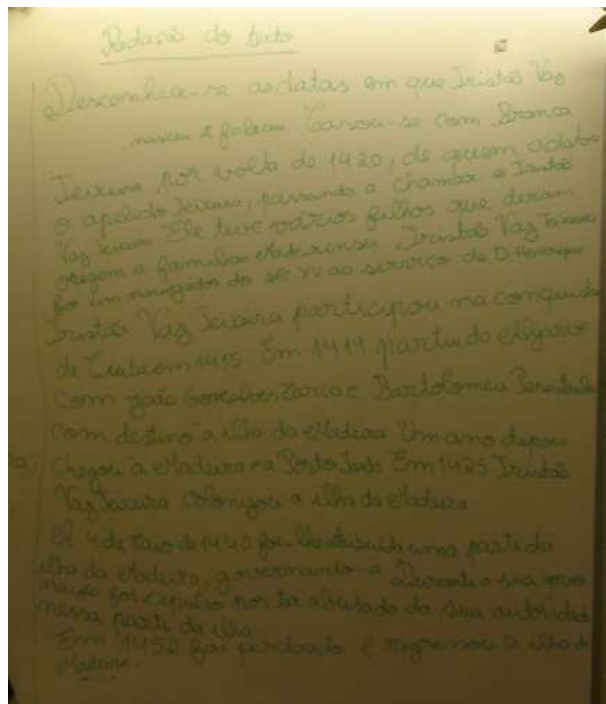 Redação do texto
Desconhece-se as datas em que Tristão Vaz
nasceu e faleceu Casou-se com Branca
Teixeira por volta de 1420, de quem adotou
o apelido Teixeira, passando a chamar-se Tristão
Vaz Teixeira Ele teve vários filhos que deram
origem a familias Madeirenses. Tristão Vaz Teixeira
foi um navegador do séc XV ao serviço de D. Henrique
Tristão Vaz Teixeira participou na conquista
de Ceuta em 1415 Em 1419 partiu do Algarve
com João Gonçalves Zarco e Bartolomeu Perestrelo
com destino à ilha da Madeira Um ano depois
chegou à Madeira e a Porto Santo Em 1425 Tristão
Vaz Teixeira colonizou a ilha da Madeira
A 4 de Maio de 1440 foi-lhe atribuída uma parte da
ilha da Madeira, governando-a Durante a sua gover
nação foi expulso por ter abusado da sua autoridade
nessa parte da ilha
Em 1452 foi perdoado e regressou à ilha da
Madeira.